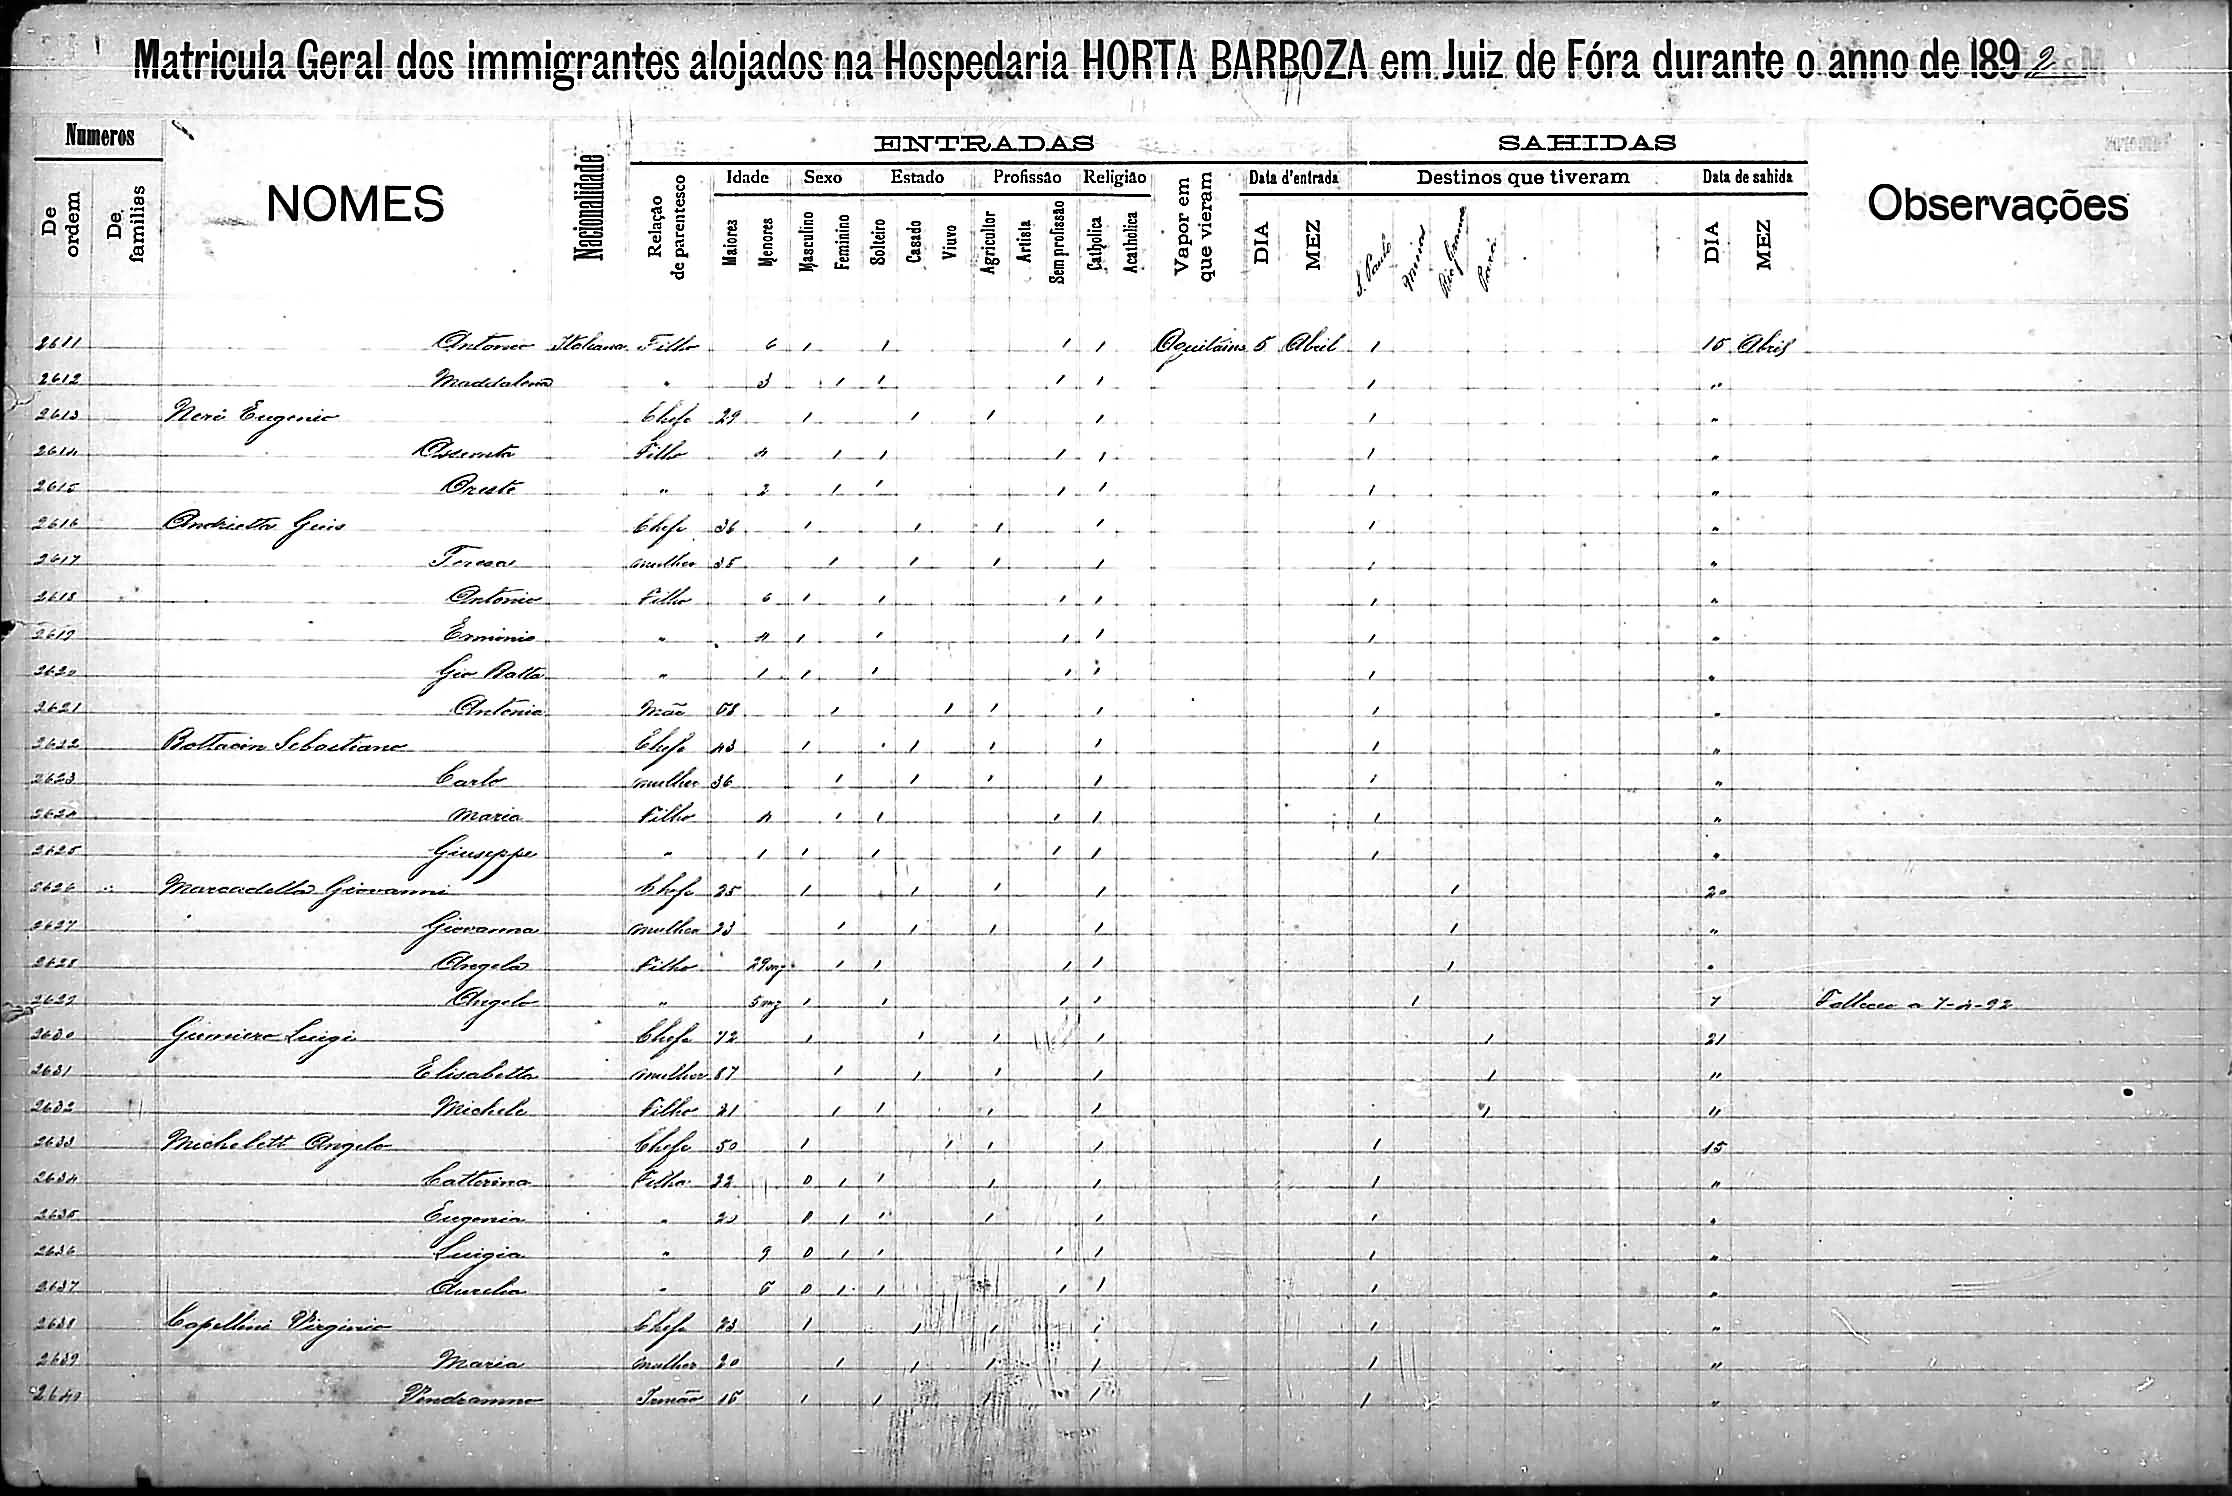 Matricula Geral dos immigrantes alojados na Hospedaria HORTA BARBOZA em Juiz de Fóra durante o anno de 1892
Numeros ENTRADAS SAHIDAS
De ordem De familias NOMES Nacionalidade Relação de parentesco Idade Sexo Estado Profissão Religião Vapor em que vieram Data d'entrada Destinos que tiveram Data de sahida Observações
Maiores Menores Masculino Feminino Solteiro Casado Viuvo Agricultor Artista Sem profissão Catholica Acatholica DIA MEZ S. Paulo Minas DIA MEZ
2611 Antonio Italiana Filho 6 1 1 1 1 5 Abril 1 15 Abril
2612 Maddalena " 3 1 1 1 1 1 "
2613 Neri Eugenio Chefe 29 1 1 1 1 1 "
2614 Assunta Filho 4 1 1 1 1 1 "
2615 Oreste " 2 1 1 1 1 1 "
2616 Andrietta Chefe 36 1 1 1 1 1 "
2617 Teresa mulher 35 1 1 1 1 1 "
2618 Antonio Filho 6 1 1 1 1 1 "
2619 Erminio " 4 1 1 1 1 1 "
2620 Gio Batta " 1 1 1 1 1 1 "
2621 Antonia Mãe 58 1 1 1 1 1 "
2622 Bottacin Sebastiano Chefe 43 1 1 1 1 1 "
2623 Carlo mulher 36 1 1 1 1 1 "
2624 Maria Filho 4 1 1 1 1 1 "
2625 Giuseppe " 1 1 1 1 1 1 "
2626 Marcadella Giovanni Chefe 25 1 1 1 1 1 20
2627 Giovanna mulher 23 1 1 1 1 1 "
2628 Angela Filho 29 mz 1 1 1 1 1 "
2629 Angelo " 5 mz 1 1 1 1 1 7 Falleceu a 7-4-92
2630 Gumiero Luigi Chefe 72 1 1 1 1 1 21
2631 Elisabetta mulher 1 1 1 1 1 "
2632 Michele Filho 21 1 1 1 1 1 "
2633 Micheletti Angelo Chefe 50 1 1 1 1 1 15
2634 Catterina Filha 22 0 1 1 1 1 1 "
2635 Eugenia " 20 0 1 1 1 1 1 "
2636 Luigia " 9 0 1 1 1 1 1 "
2637 Aurelia " 0 1 1 1 1 1 "
2638 Capellini Virginio Chefe 23 1 1 1 1 1 "
2639 Maria mulher 20 1 1 1 1 1 "
2640 Vendramino Irmão 1 1 1 1 1 "